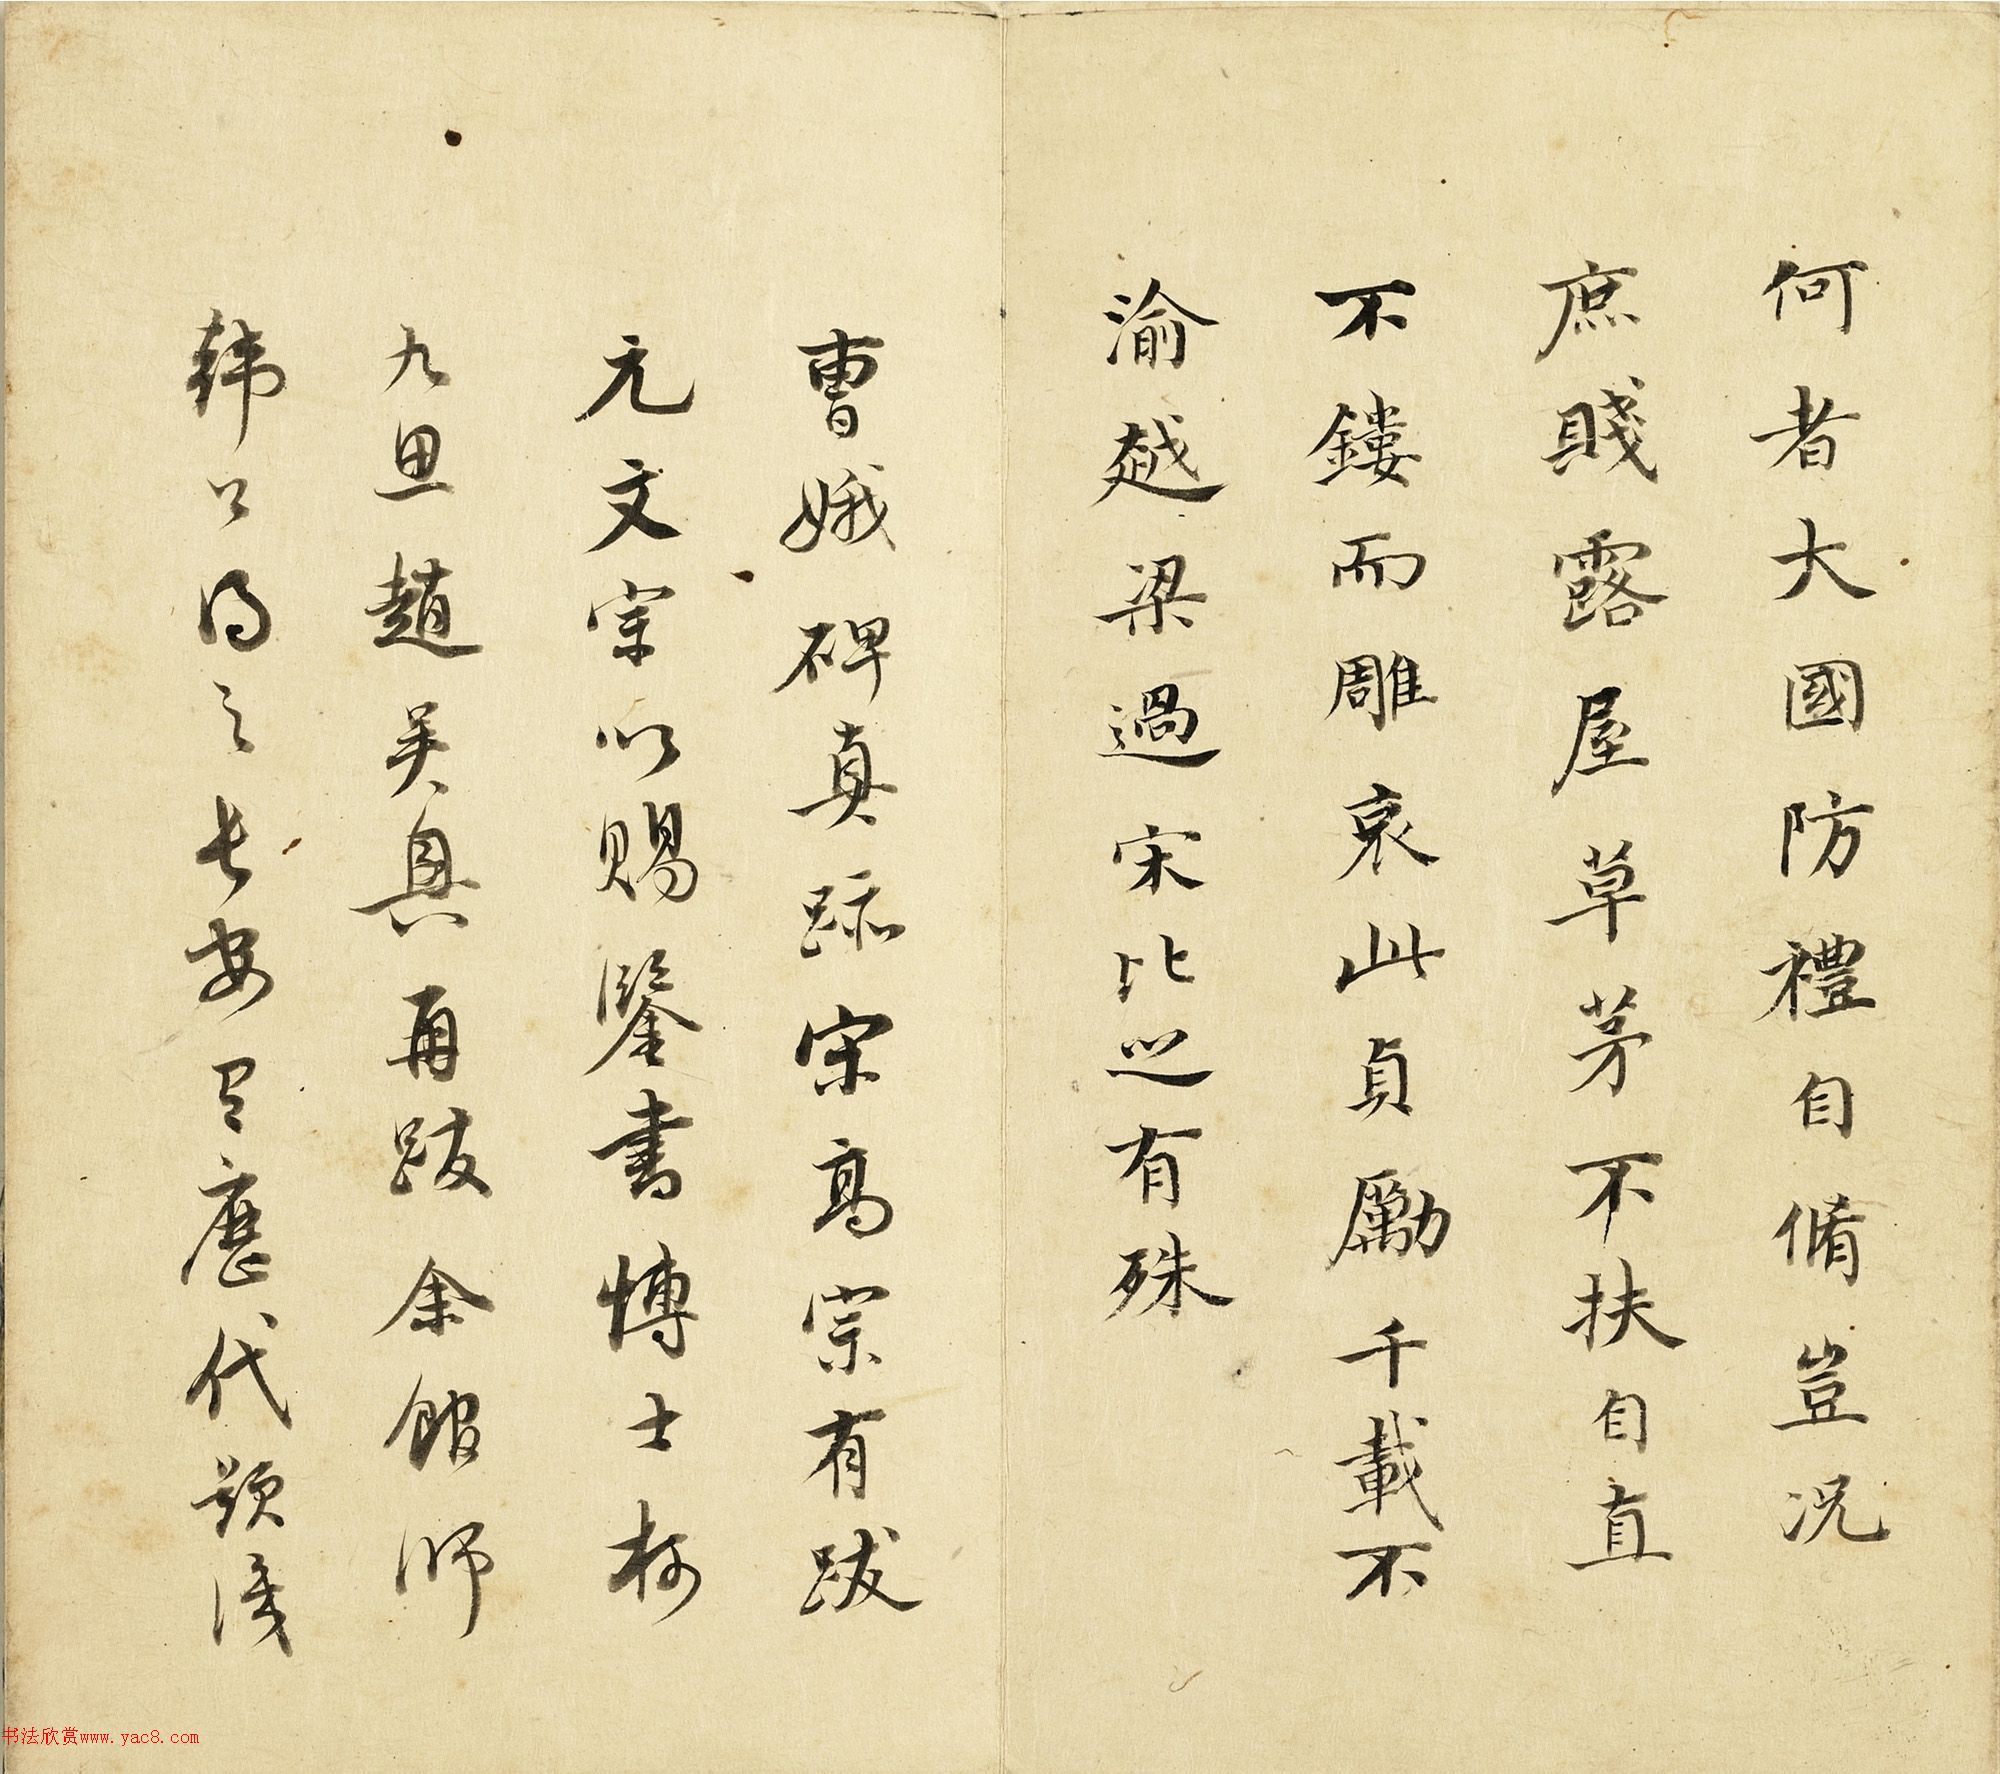 何者大國防禮自脩豈況
庶賤露屋草茅不扶自直
不鏤而雕哀此貞勵千載不
渝越梁過宋比之有殊
曹娥碑真跡宋高宗有跋
元文宗以賜鑒書博士柯
九思趙吳興再跋余館師
韓公得之長安又有歷代題識
书法欣赏www.yac8.com